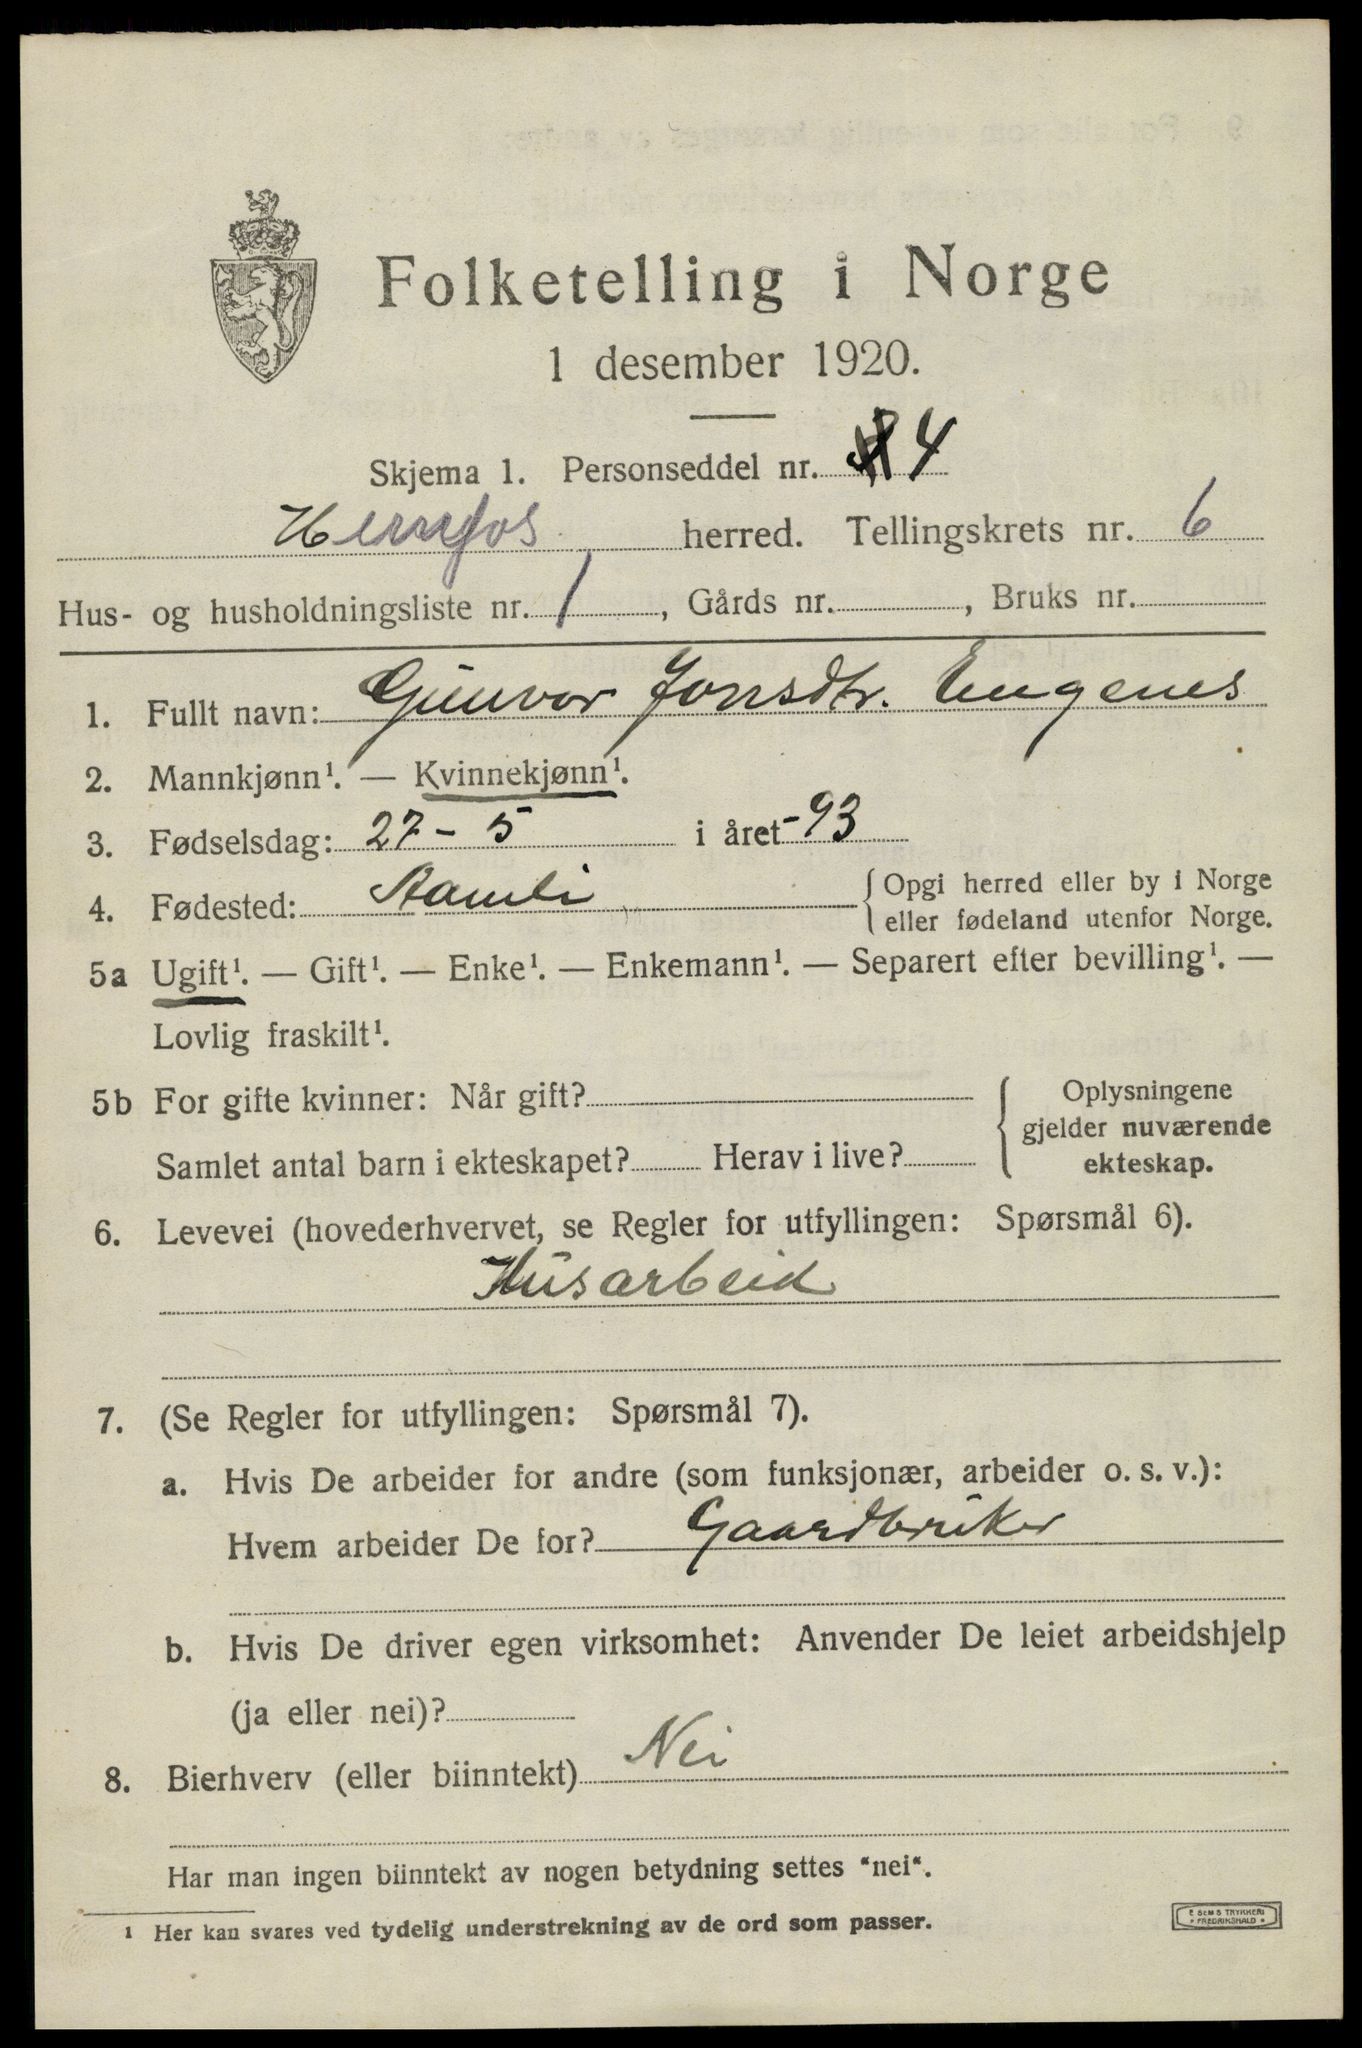 Folketelling i Norge
1 desember 1920.
Skjema 1. Personseddel nr. 4
Herefos herred. Tellingskrets nr. 6
Hus- og husholdningsliste nr. 1, Gårds nr. , Bruks nr.
1. Fullt navn: Gunvor Jonsdtr. Engenes
2. Mannkjønn¹. — Kvinnekjønn¹.
3. Fødselsdag: 27 - 5 i året -93
4. Fødested: Aamli { Opgi herred eller by i Norge
eller fødeland utenfor Norge.
5a Ugift¹. — Gift¹. — Enke¹. — Enkemann¹. — Separert efter bevilling¹. —
Lovlig fraskilt¹.
5b For gifte kvinner: Når gift? { Oplysningene
gjelder nuværende
Samlet antal barn i ekteskapet? Herav i live? ekteskap.
6. Levevei (hovederhvervet, se Regler for utfyllingen: Spørsmål 6).
Husarbeid
7. (Se Regler for utfyllingen: Spørsmål 7).
a. Hvis De arbeider for andre (som funksjonær, arbeider o. s. v.):
Hvem arbeider De for? Gaardbruker
b. Hvis De driver egen virksomhet: Anvender De leiet arbeidshjelp
(ja eller nei)?
8. Bierhverv (eller biinntekt) Nei
Har man ingen biinntekt av nogen betydning settes "nei".
1 Her kan svares ved tydelig understrekning av de ord som passer.
E SEMS TRYKKERI
* FREDRIKSHALD *